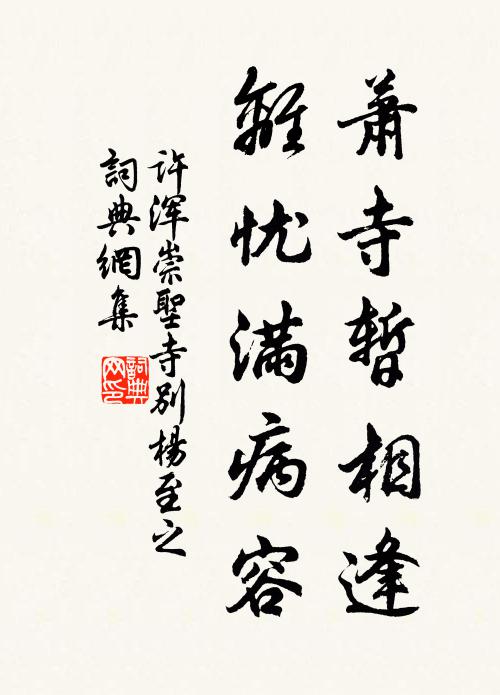 蕭寺暫相逢
離忧滿病容
许浑崇聖寺别楊至之
詞典網集
詞典网印